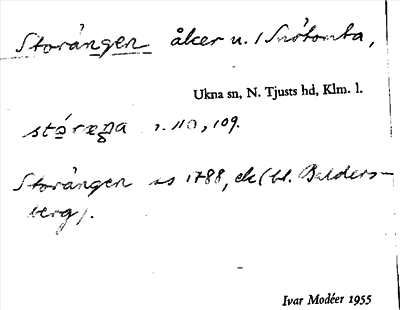 Storängen åker u. Snötomta,
Ukna sn, N. Tjusts hd, Klm. l.
r. 110, 109.
Storängen ss 1788, ek (bl. Balders-
berg).
Ivar Modéer 1955